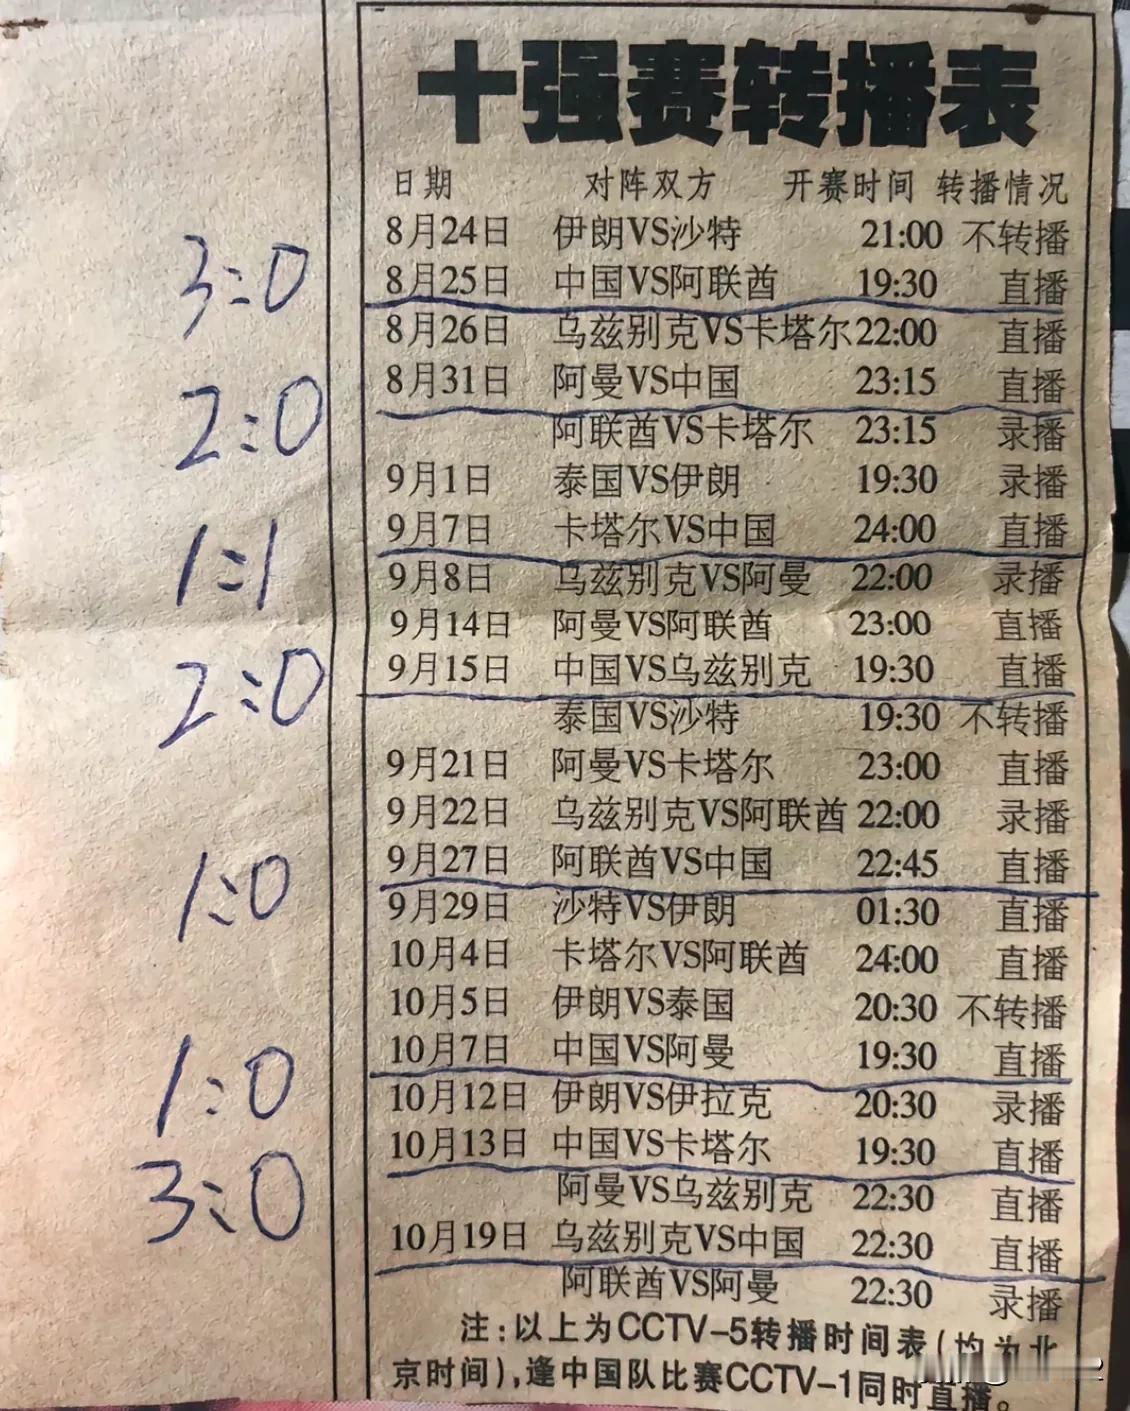 十强赛转播表
日期 对阵双方 开赛时间 转播情况
8月24日 伊朗VS沙特 21:00 不转播
3:0
8月25日 中国VS阿联酋 19:30 直播
8月26日 乌兹别克VS卡塔尔 22:00 直播
8月31日 阿曼VS中国 23:15 直播
2:0
阿联酋VS卡塔尔 23:15 录播
9月1日 泰国VS伊朗 19:30 录播
9月7日 卡塔尔VS中国 24:00 直播
1:1
9月8日 乌兹别克VS阿曼 22:00 录播
9月14日 阿曼VS阿联酋 23:00 直播
9月15日 中国VS乌兹别克 19:30 直播
2:0
泰国VS沙特 19:30 不转播
9月21日 阿曼VS卡塔尔 23:00 直播
9月22日 乌兹别克VS阿联酋 22:00 录播
9月27日 阿联酋VS中国 22:45 直播
1:0
9月29日 沙特VS伊朗 01:30 直播
10月4日 卡塔尔VS阿联酋 24:00 直播
10月5日 伊朗VS泰国 20:30 不转播
10月7日 中国VS阿曼 19:30 直播
1:0
10月12日 伊朗VS伊拉克 20:30 录播
10月13日 中国VS卡塔尔 19:30 直播
3:0
阿曼VS乌兹别克 22:30 直播
10月19日 乌兹别克VS中国 22:30 直播
阿联酋VS阿曼 22:30 录播
注:以上为CCTV-5转播时间表(均为北
京时间),逢中国队比赛CCTV-1同时直播。